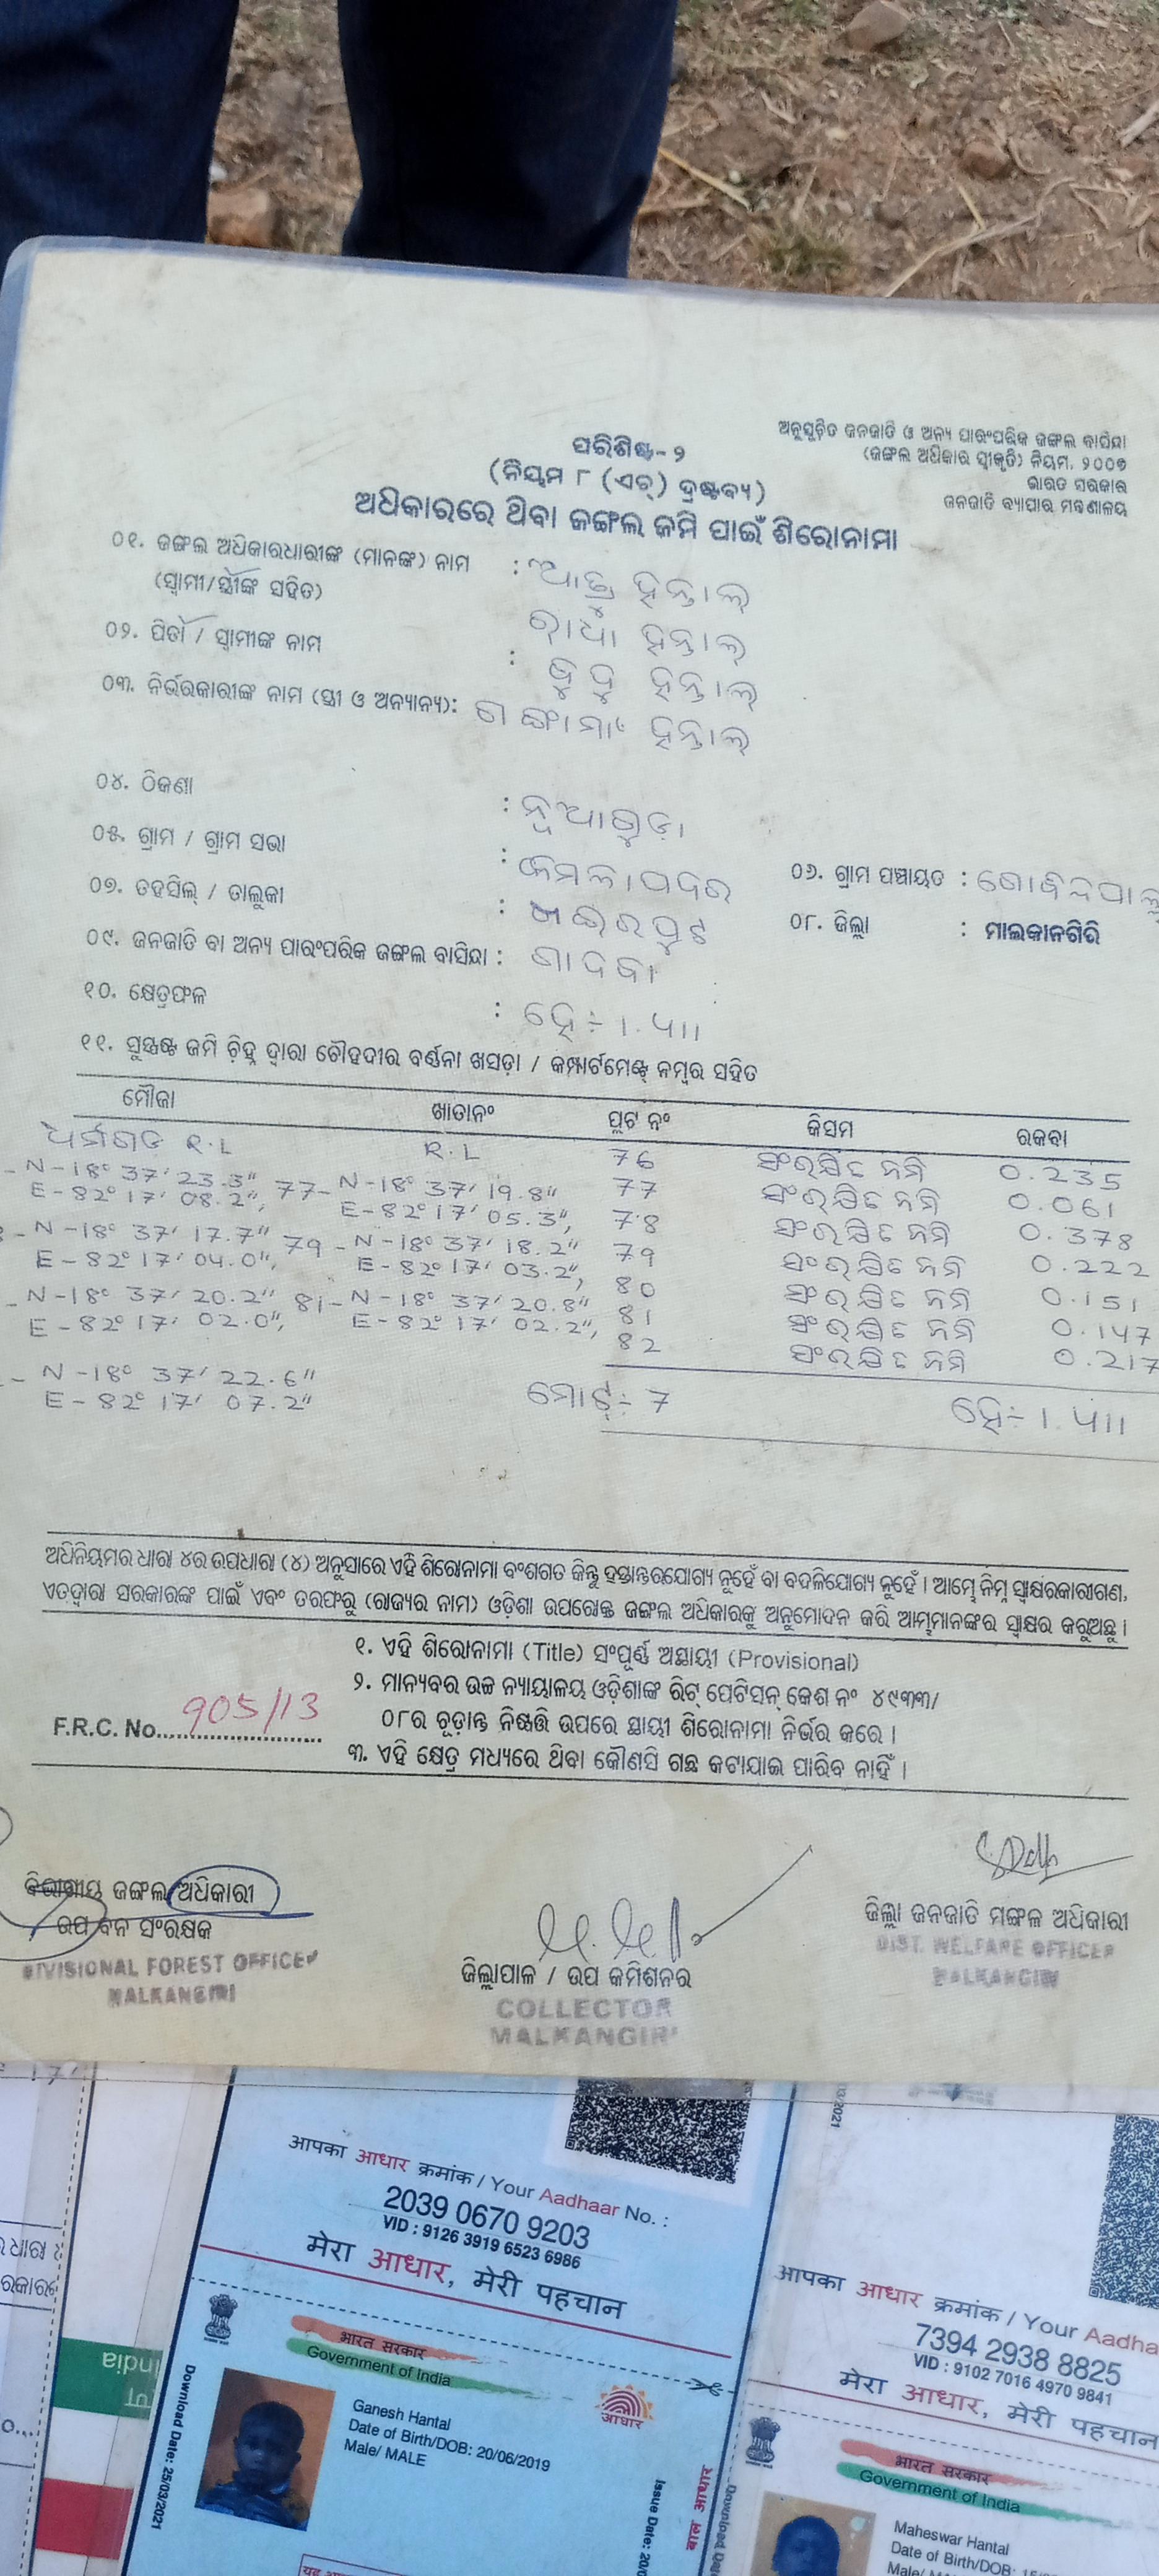 ଅନୁସୂଚିତ ଜନଜାତି ଓ ଅନ୍ୟ ପାରଂପରିକ ଜଙ୍ଗଲ ବାସିନ୍ଦା
(ଜଙ୍ଗଲ ଅଧିକାର ସ୍ୱୀକୃତି) ନିୟମ, ୨୦୦୭
ଭାରତ ସରକାର
ଜନଜାତି ବ୍ୟାପାର ମନ୍ତ୍ରଣାଳୟ
ପରିଶିଷ୍ଟ-୨
(ନିୟମ ୮ (ଏଚ୍) ଦ୍ରଷ୍ଟବ୍ୟ)
ଅଧିକାରରେ ଥିବା ଜଙ୍ଗଲ ଜମି ପାଇଁ ଶିରୋନାମା
୦୧. ଜଙ୍ଗଲ ଅଧିକାରଧାରୀଙ୍କ (ମାନଙ୍କ) ନାମ : ହନ୍ତାଲ୍
(ସ୍ୱାମୀ/ସ୍ତ୍ରୀଙ୍କ ସହିତ) ରାଧା ହନ୍ତାଲ୍
୦୨. ପିତା / ସ୍ୱାମୀଙ୍କ ନାମ : ହନ୍ତାଲ୍
୦୩. ନିର୍ଭରକାରୀଙ୍କ ନାମ (ସ୍ତ୍ରୀ ଓ ଅନ୍ୟାନ୍ୟ): ହନ୍ତାଲ୍
୦୪. ଠିକଣା :
୦୫. ଗ୍ରାମ / ଗ୍ରାମ ସଭା : କମଳାପଦର
୦୬. ଗ୍ରାମ ପଞ୍ଚାୟତ :
୦୭. ତହସିଲ୍ / ତାଲୁକା : ଖଇରପୁଟ
୦୮. ଜିଲ୍ଲା : ମାଲକାନଗିରି
୦୯. ଜନଜାତି ବା ଅନ୍ୟ ପାରଂପରିକ ଜଙ୍ଗଲ ବାସିନ୍ଦା : ଗାଦବା
୧୦. କ୍ଷେତ୍ରଫଳ : ହେ÷ ୧.୪୧୧
୧୧. ସୁସ୍ପଷ୍ଟ ଜମି ଚିହ୍ନ ଦ୍ୱାରା ଚୌହଦୀର ବର୍ଣ୍ଣନା ଖସଡ଼ା / କମ୍ପାର୍ଟମେଣ୍ଟ୍ ନମ୍ବର ସହିତ
ମୌଜା ଖାତାନଂ ପ୍ଲଟ ନଂ କିସମ ରକବା
R.L R.L 76 ସଂରକ୍ଷିତ ଜମି 0.235
N-18° 37' 23.3" 77- N-18° 37' 19.8" 77 ସଂରକ୍ଷିତ ଜମି 0.061
E-82° 17' 08.2", E-82° 17' 05.3", 78 ସଂରକ୍ଷିତ ଜମି 0.378
N-18° 37' 17.7" 79- N-18° 37' 18.2" 79 ସଂରକ୍ଷିତ ଜମି 0.222
E-82° 17' 04.0", E-82° 17' 03.2", 80 ସଂରକ୍ଷିତ ଜମି 0.151
N-18° 37' 20.2" 81- N-18° 37' 20.8" 81 ସଂରକ୍ଷିତ ଜମି 0.147
E-82° 17' 02.0", E-82° 17' 02.2", 82 ସଂରକ୍ଷିତ ଜମି 0.217
N-18° 37' 22.6"
E-82° 17' 07.2"
ମୋଟ୍÷ 7 ହେ÷ ୧.୪୧୧
ଅଧିନିୟମର ଧାରା ୪ର ଉପଧାରା (୪) ଅନୁସାରେ ଏହି ଶିରୋନାମା ବଂଶଗତ କିନ୍ତୁ ହସ୍ତାନ୍ତରଯୋଗ୍ୟ ନୁହେଁ ବା ବଦଳିଯୋଗ୍ୟ ନୁହେଁ । ଆମ୍ଭେ ନିମ୍ନ ସ୍ୱାକ୍ଷରକାରୀଗଣ,
ଏତଦ୍ୱାରା ସରକାରଙ୍କ ପାଇଁ ଏବଂ ତରଫରୁ (ରାଜ୍ୟର ନାମ) ଓଡ଼ିଶା ଉପରୋକ୍ତ ଜଙ୍ଗଲ ଅଧିକାରକୁ ଅନୁମୋଦନ କରି ଆମ୍ଭମାନଙ୍କର ସ୍ୱାକ୍ଷର କରୁଅଛୁ ।
୧. ଏହି ଶିରୋନାମା (Title) ସଂପୂର୍ଣ୍ଣ ଅସ୍ଥାୟୀ (Provisional)
୨. ମାନ୍ୟବର ଉଚ୍ଚ ନ୍ୟାୟାଳୟ ଓଡ଼ିଶାଙ୍କ ରିଟ୍ ପେଟିସନ୍ କେଶ ନଂ ୪୯୩୩/
୦୮ର ଚୂଡ଼ାନ୍ତ ନିଷ୍ପତ୍ତି ଉପରେ ସ୍ଥାୟୀ ଶିରୋନାମା ନିର୍ଭର କରେ ।
F.R.C. No. 905/13
୩. ଏହି କ୍ଷେତ୍ର ମଧ୍ୟରେ ଥିବା କୌଣସି ଗଛ କଟାଯାଇ ପାରିବ ନାହିଁ ।
ବିଭାଗୀୟ ଜଙ୍ଗଲ ଅଧିକାରୀ
ଉପ ବନ ସଂରକ୍ଷକ
DIVISIONAL FOREST OFFICER
MALKANGIRI
ଜିଲ୍ଲାପାଳ / ଉପ କମିଶନର
COLLECTOR
MALKANGIRI
ଜିଲ୍ଲା ଜନଜାତି ମଙ୍ଗଳ ଅଧିକାରୀ
DIST. WELFARE OFFICER
MALKANGIRI
आपका आधार क्रमांक / Your Aadhaar No. :
2039 0670 9203
VID : 9126 3919 6523 6986
मेरा आधार, मेरी पहचान
भारत सरकार
Government of India
आधार
Ganesh Hantal
Date of Birth/DOB: 20/06/2019
Male/ MALE
Download Date: 25/03/2021
Issue Date: 20/0
बाल आधार
आपका आधार क्रमांक / Your Aadha
7394 2938 8825
VID : 9102 7016 4970 9841
मेरा आधार, मेरी पहचान
भारत सरकार
Government of India
Maheswar Hantal
Date of Birth/DOB: 15/
India